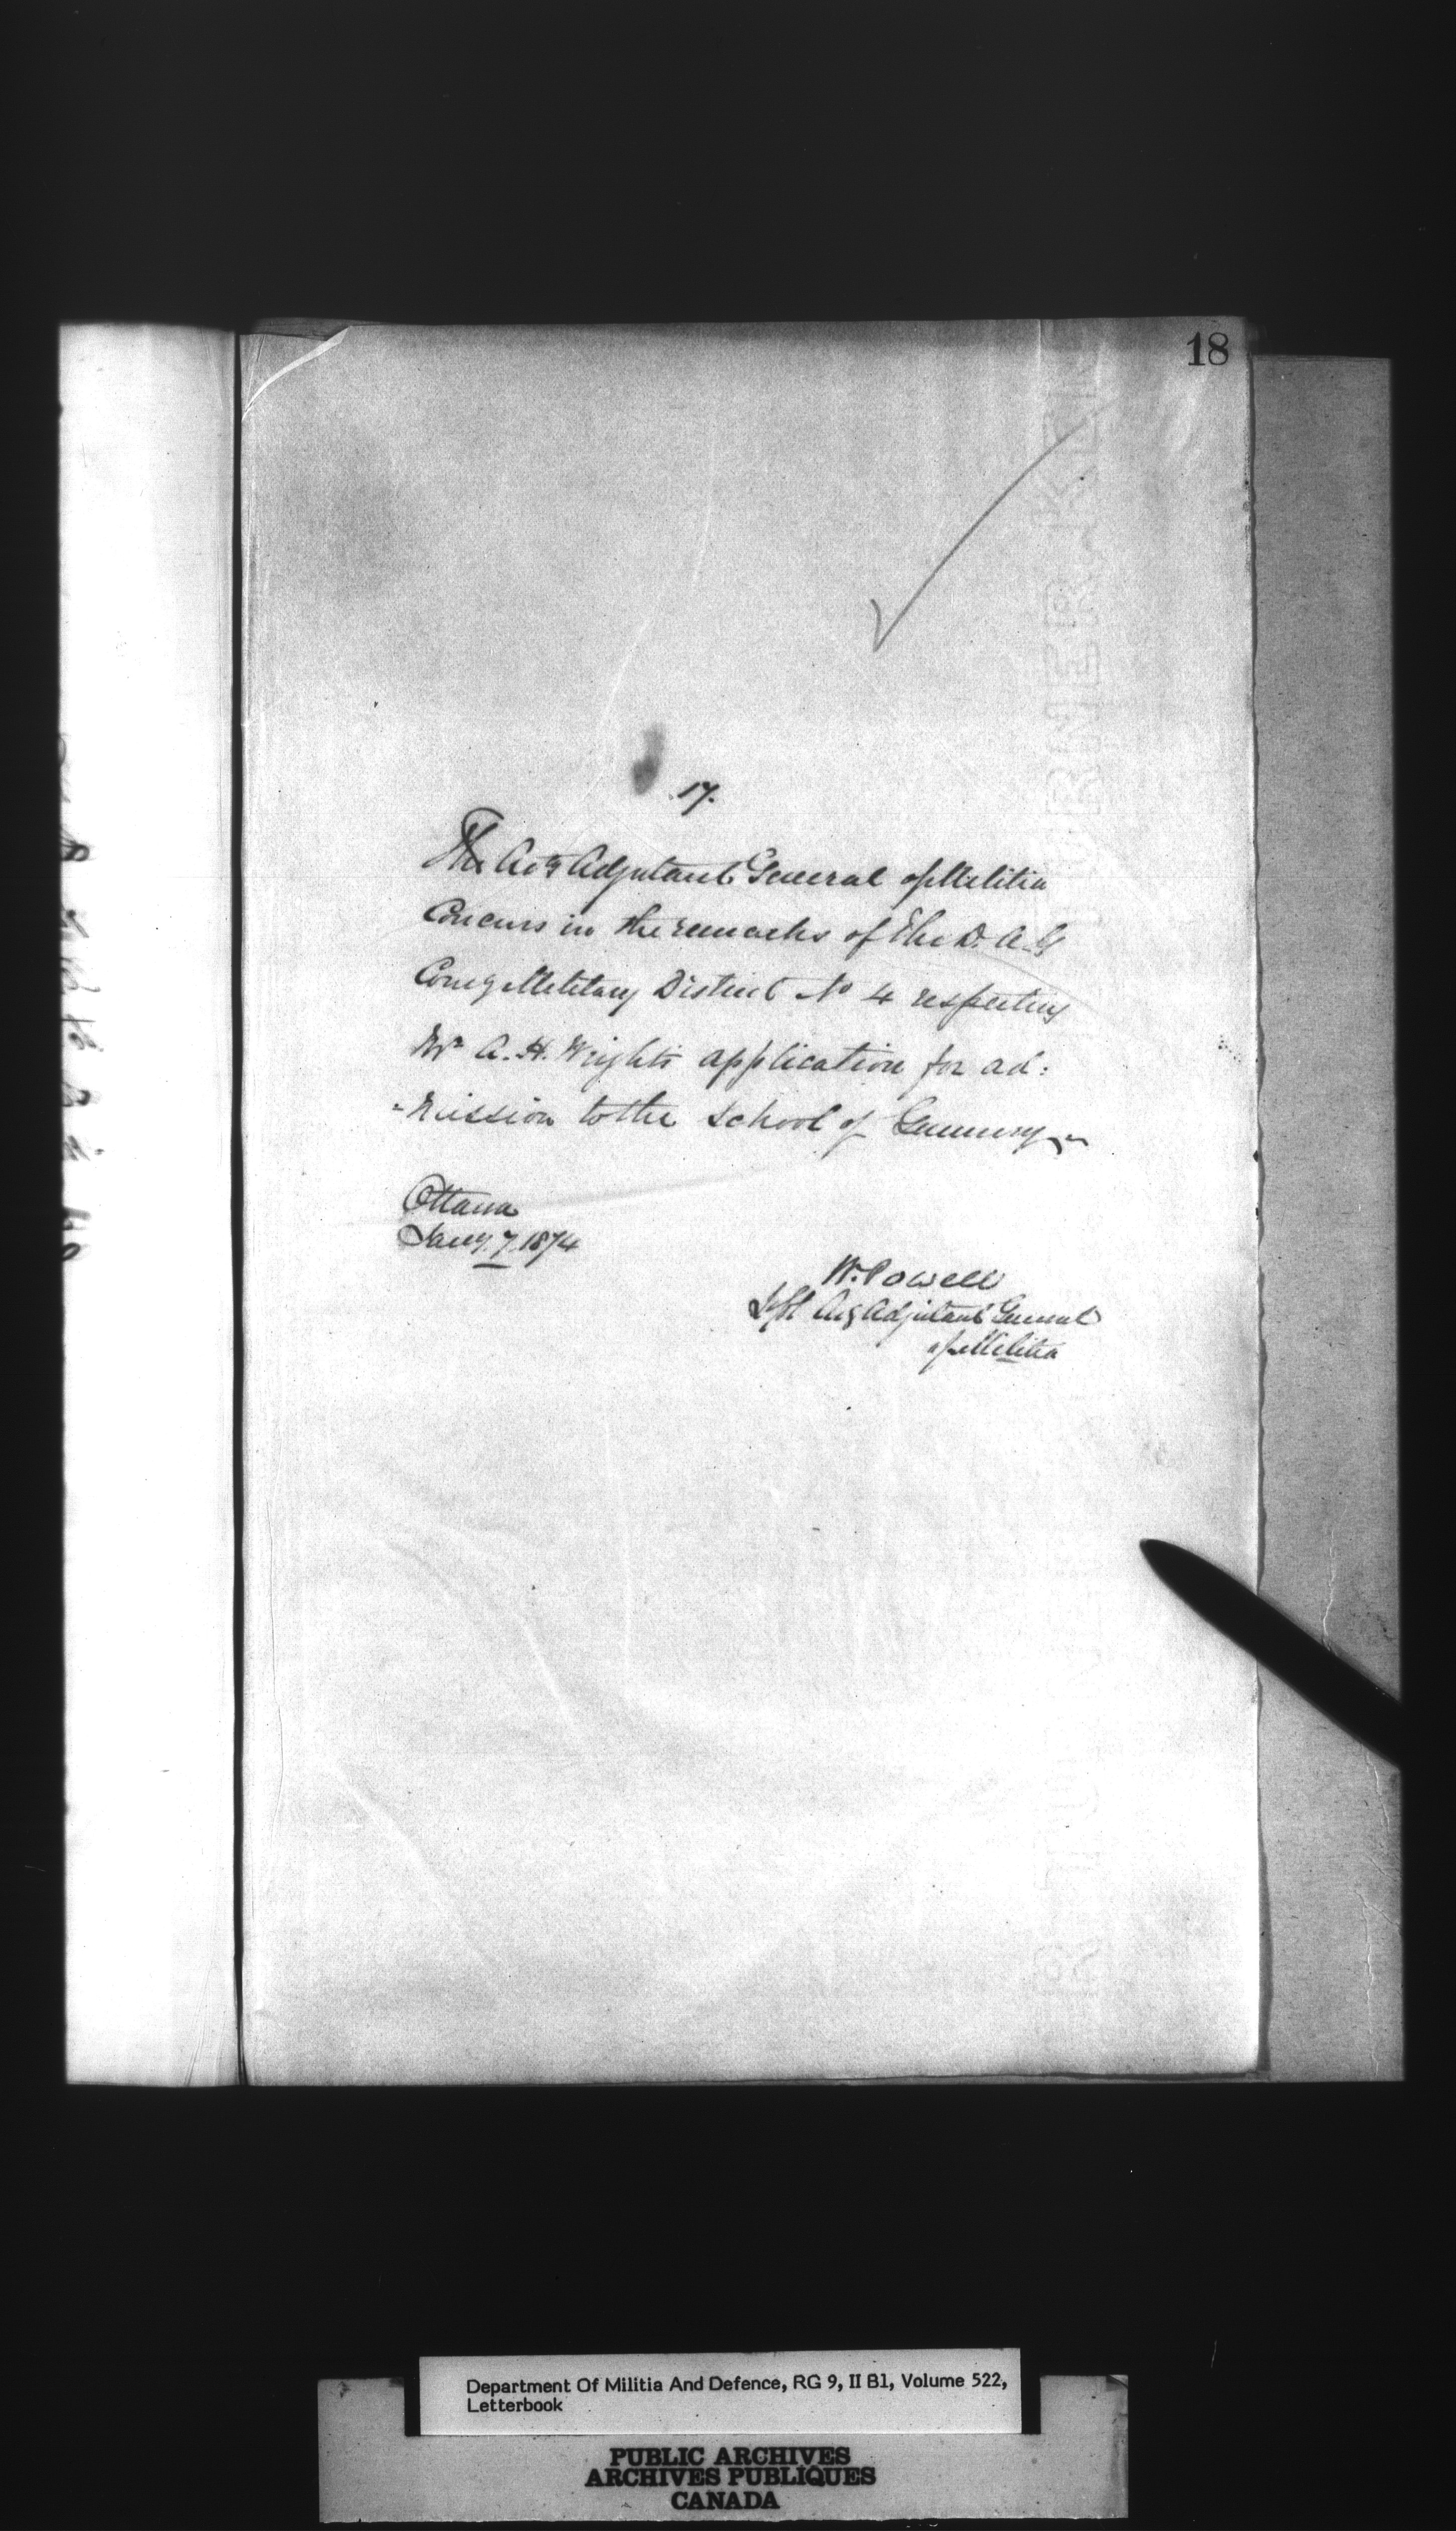 18
17.
The Actg Adjutant General of Militia
Concurs in the remarks of the D. A. G
Comg Military District No 4 respecting
Mr A. H. Wright's application for ad:
-mission to the School of Gunnery
Ottawa
Jany. 7. 1874
W. Powell
Actg Adjutant General
of Militia
Department Of Militia And Defence, RG 9, II B1, Volume 522,
Letterbook
PUBLIC ARCHIVES
ARCHIVES PUBLIQUES
CANADA